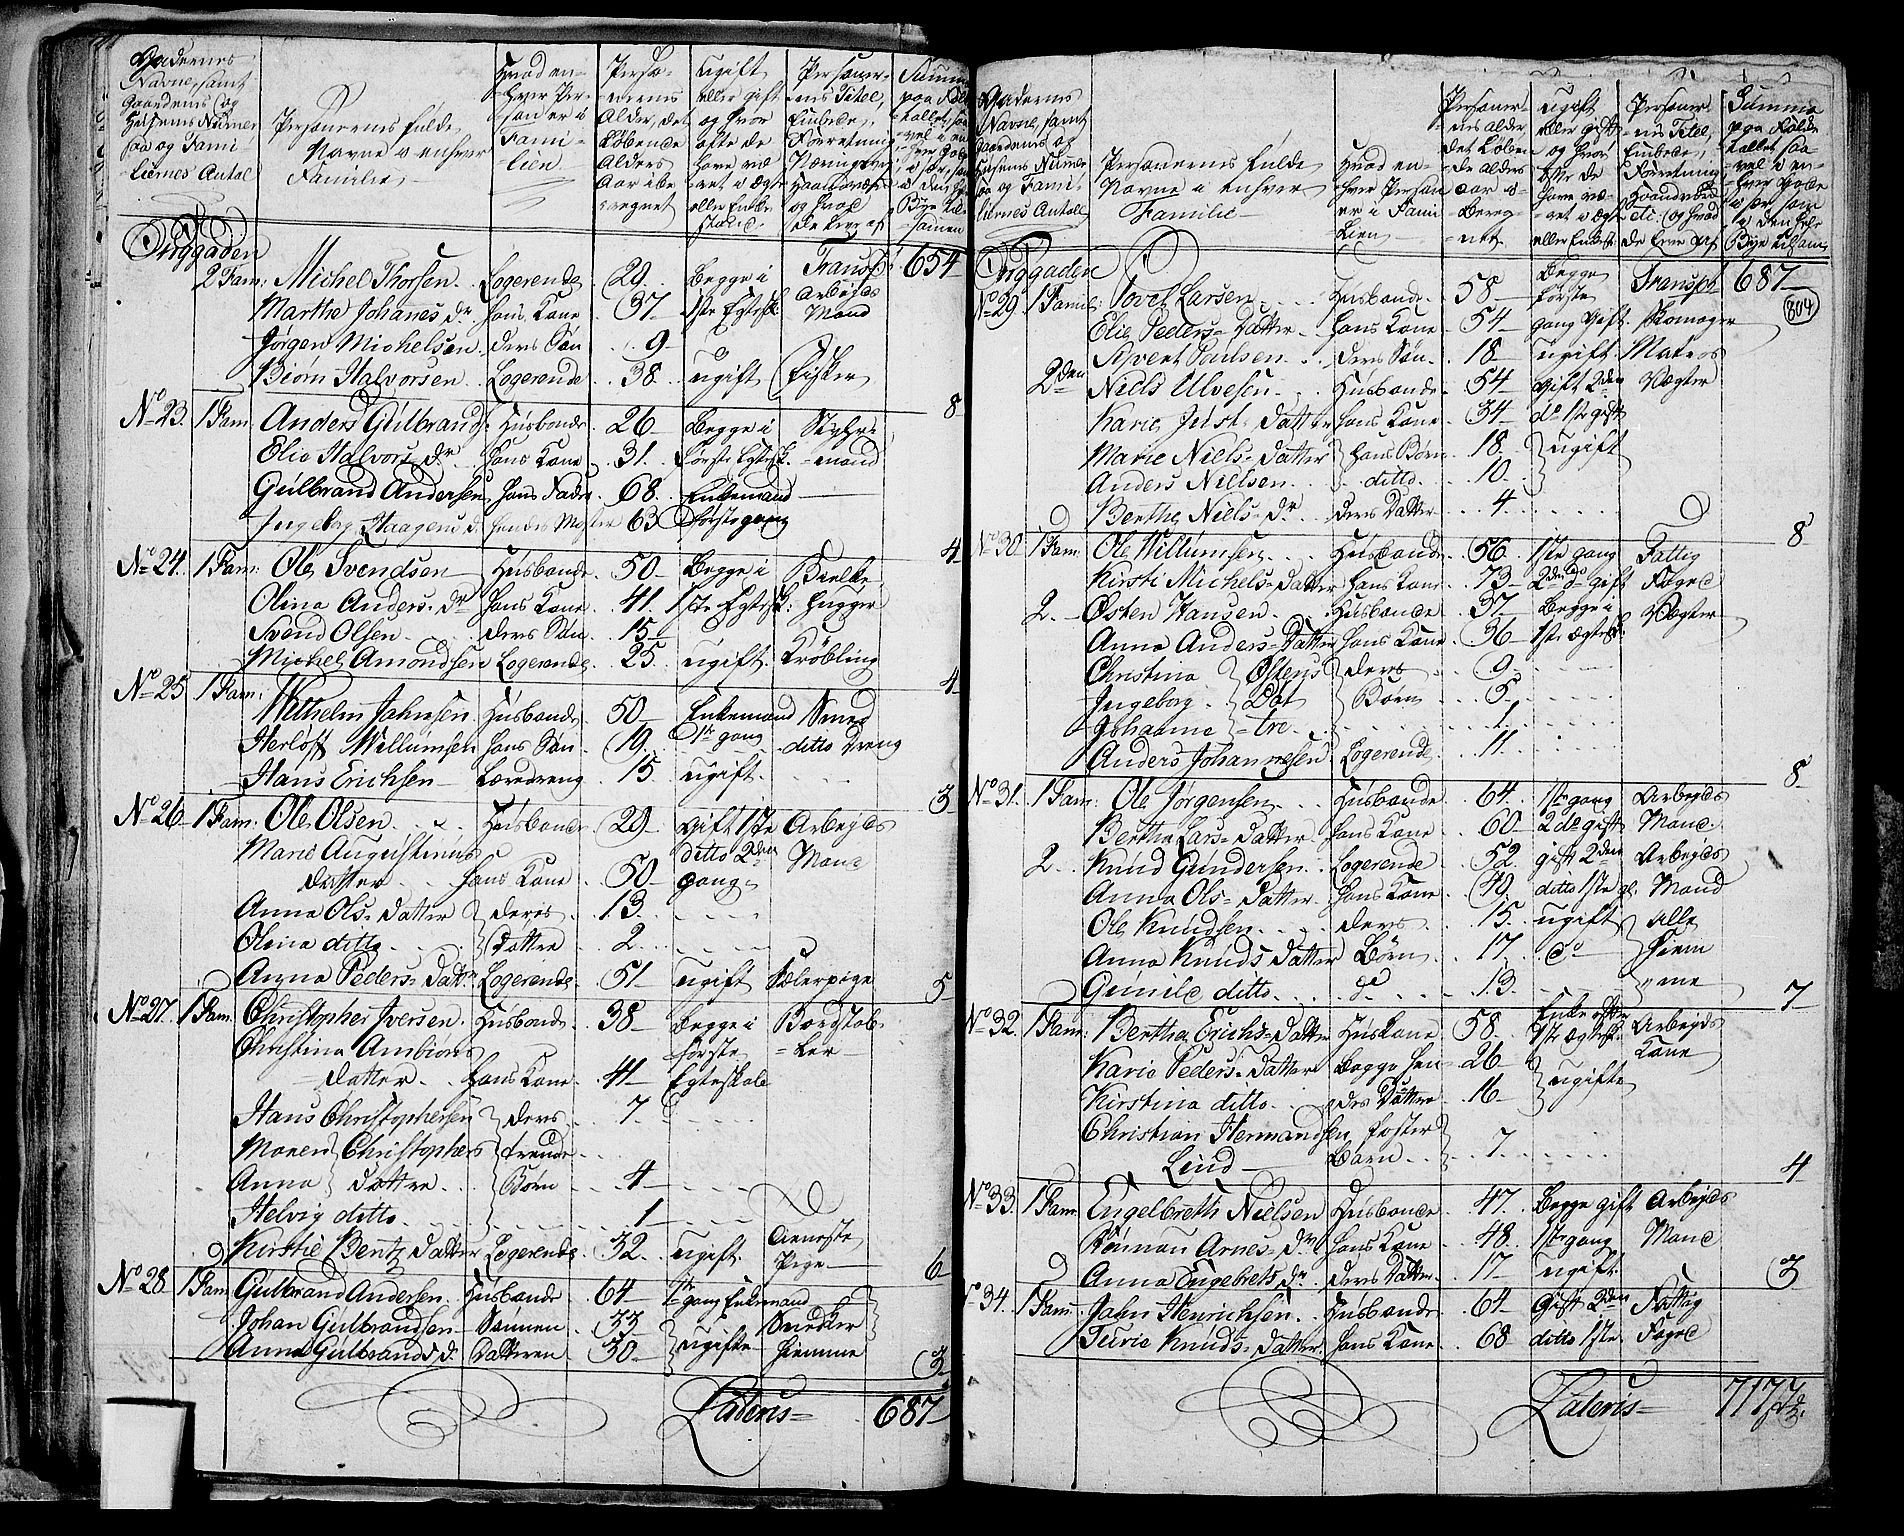 Gadernes
Navne, samt
Gaardenes og
Husenes Numer
saa og Fami-
liernes Antal
Personernes fulde
Navne i enhver
Familie
Hvad en-
hver Per-
son er i
Fami-
lien
Perso-
nernes
Alder, det
Løbende
Alders
Aar ibe
regnet
Ugift
eller gift
og hvor
ofte de
have væ
ret i Ægte
eller Enke
stand
Personer-
nes Titel,
Embede,
Forretning
og hvad
de leve af
Summa
paa Folke
Tallet, saa
vel i en
hver Gade
Storgaden Transpt 654
2 Fam: Michel Thorsen Logerende 29 Begge i Arbejds
Marthe Johanes dr hans Kone 37 1ste Egtesk Mand
Jørgen Michelsen deres Søn 9
Biørn Halvorsen Logerende 38 ugift Fisker 8
No 23 1 Fam Anders Gulbrands Husbonde 26 Begge i Styhr-
Elie Halvors dr hans Kone 31 første Egtesk. mand
Gulbrand Andersen hans Fader 68 Enkemand
Ingeborg Haagens d. hendes Moster 63 første gang 4
No 24 1 Fam: Ole Svendsen Husbonde 50 Begge i Bielke
Olina Anders dr hans Kone 41 1ste Egtesk: hugger
Svend Olsen deres Søn 15
Michel Amondsen Logerende 25 ugift Krøbling 4
No 25 1 Fam: Wilhelm Jahnsen Husbonde 50 Enkemand Smed
Herlof Willumsen hans Søn 19 1te gang ditto Dreng
Hans Erichsen Læredreng 15 ugift 3
No 26 1 Fam: Ole Olsen Husbonde 29 Gift 1ste Arbejds
Marie Augustinus ditto 2den Mand
datter hans Kone 50 gang
Anna Ols= datter deres 13
Olena ditto Døttre 2
Anna Peders= Datter Logerende 51 ugift 5
No 27 1 Fam. Christopher Iversen Husbonde 38 Begge i Bogstav=
Christina Ambiørns første
datter hans Kone 41 Egteskab
Hans Christophersen deres 7
Maren Christophers trende
Anna døttre Børn 4
Helvig ditto 1
Kirstie Bentz datter Logerende 32 ugift Pige 6
No 28 1 Fam Gulbrand Andersen Husbonde 64 1te gang Enkemand
Johan Gulbrandsen Sønnen 33 ugifte Snedker
Anna Gulbrands d. Datteren 30 hiemme 3
Lateris= 687
Gadernes
Navne, samt
Gaardenes og
Husenes Numer
saa og Fami-
liernes Antall
Personernes fulde
Navne i enhver
Familie
Hvad en-
hver Person
er i Fami
lien
Personer-
nes alder
det Løben
de alders
aar i-
bereg-
net
Ugift
eller gift
og hvor
ofte de
have væ-
ret i Ægte
eller Enkest
Personer
nes Titel,
Embede,
Forretning
og hvad
de leve af
Summa
paa Folke
Tallet saa
vel i en-
hver Gade
i sær som
i den hele
Bye tilsam
Storgaden Transpt 687
804
No 29 1 Famil: Povel Larsen Husbonde 58 Begge første
Elie Peders= Datter hans Kone 54 gang Gift Skomager
Syvert Paulsen deres Søn 18 ugift Matros
2den Niels Ulvesen Husbonde 54 Gift 2den Vægter
Karie Just Datter hans Kone 34 do 1ste gift
Marie Niels= Datter hans Børn 18 ugift
Anders Nielsen ditto 10
Berthe Niels= dr deres Datter 4 8
No 30 1 Fam. Ole Willumsen Husbonde 56 1ste gang Fattig
Kirsti Michels= Datter hans Kone 73 2den do gift Foged
2 Østen Hansen Husbonde 37 Begge i Vægter
Anna Anders= Datter hans Kone 36 1ste Ægtesk.
Christina Østens deres 9
Ingeborg Døt Børn 5
Johanne tre 1
Anders Johannesen Logerende 11 8
No 31 1 Fam: Ole Jørgensen Husbonde 64 1te gang Arbejds
Berthe Lars= Datter hans Kone 60 2de gift Mand
2 Knud Gundersen Logerende 52 gift 2den Arbejds
Anna Ols= Datter hans Kone 49 ditto 1ste g. Mand
Ole Knudsen deres 15 ugift alle
Anna Knuds Datter Børn 17 do hiem
Gunild ditto do 13 me 7
No 32 1 Fam: Berthe Erichs= Datter Huskone 58 Enke efter 1ste Ægtesk. Arbejds
Karie Peders= Datter Begge hen 26 ugifte Kone
Kirstina ditto des Døttre 16
Christian Hermandsen foster
Lind Barn 7 4
No 33 1 Fam Engelbreth Nielsen Husbonde 47 Begge gift Arbejds
Rønnau Arnes= dr hans Kone 48 1ste gang Mand
Anna Engebrets dr deres Datter 17 ugift 3
No 34 1 Fam: Jahn Henrichsen Husbonde 64 Gift 2den Fattig
Turie Knuds= Datter hans Kone 68 ditto 1ste Foged
Lateris= 717